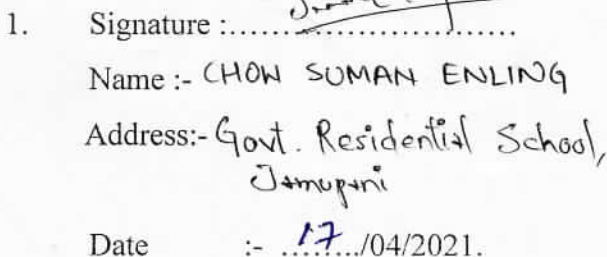 1. Signature :..............................
Name :- CHOW SUMAN ENLING
Address:- Govt. Residential School,
Jamupani
Date :- 17/04/2021.